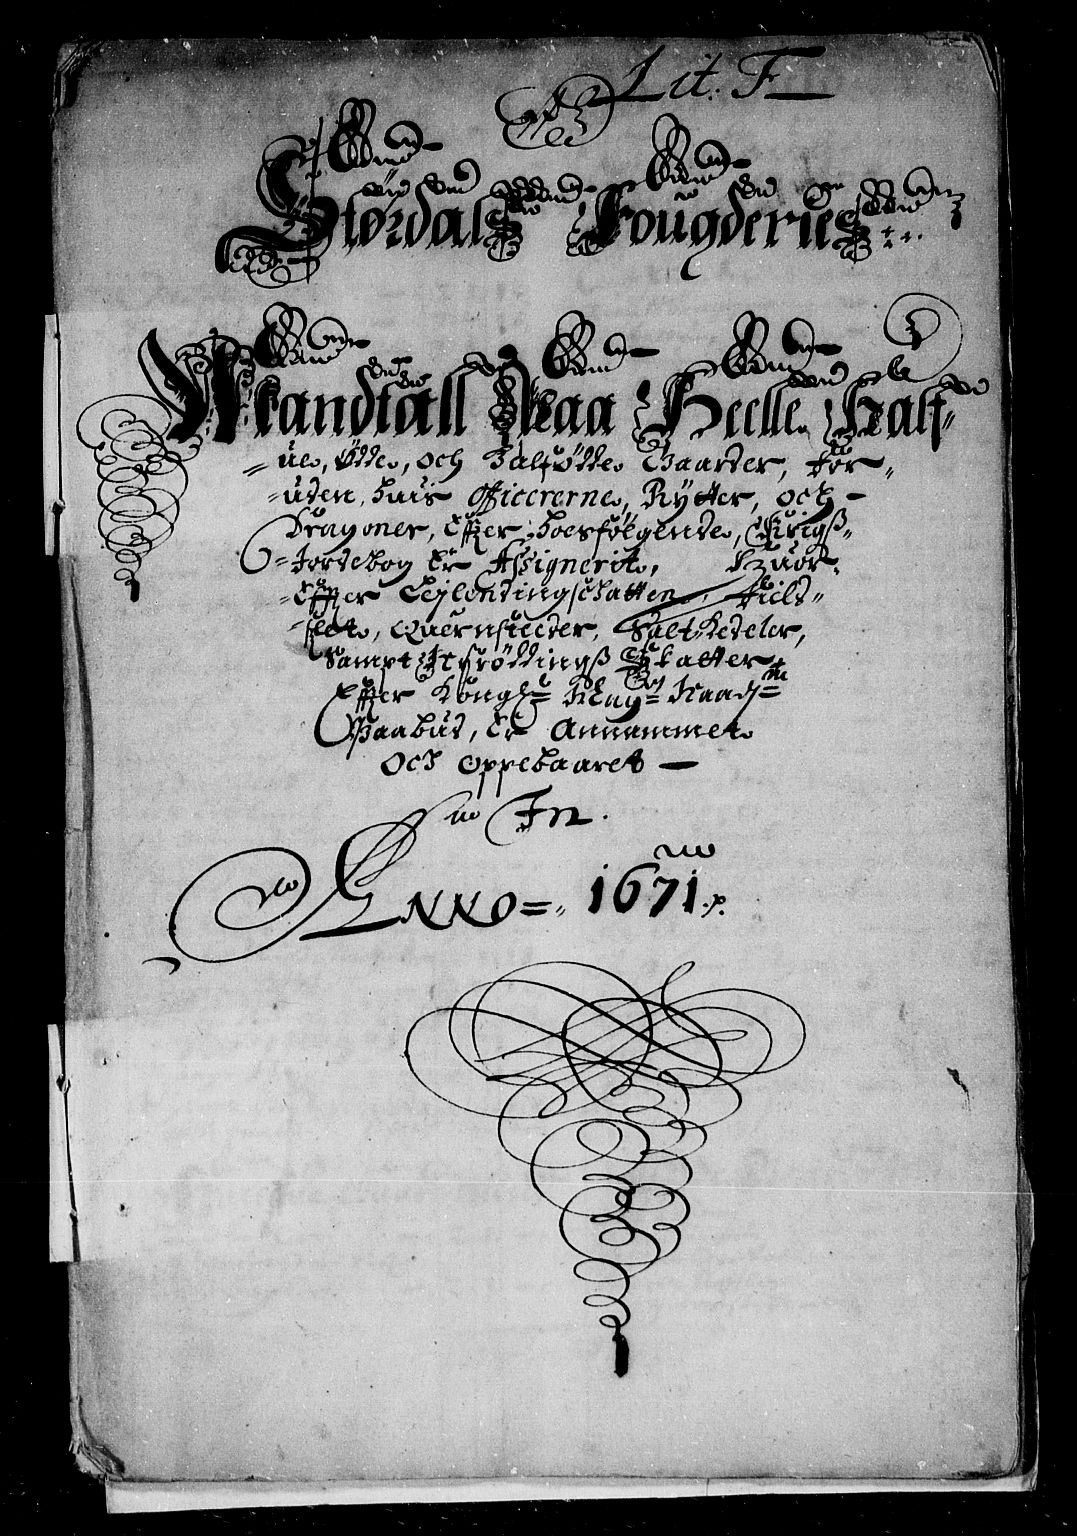 Lit. F
Størdals Fougderies
Mandtall Paa Heelle Half-
ue, Ødde, och Half ødde Gaarder, For-
uden huis Officererne, Rytter, och
Dragoner, Effter hoesfølgende, Krigß-
Jordebog Er Assignerit, Huor-
Effter Lejlendingschatten, Field-
fled, Quernsteeder, Saltkedeler,
Sampt Skatter
Effter Kongl: May: Naadst:
Paabud, Er Annammet
Och Oppebaaret
In
ANNO 1671